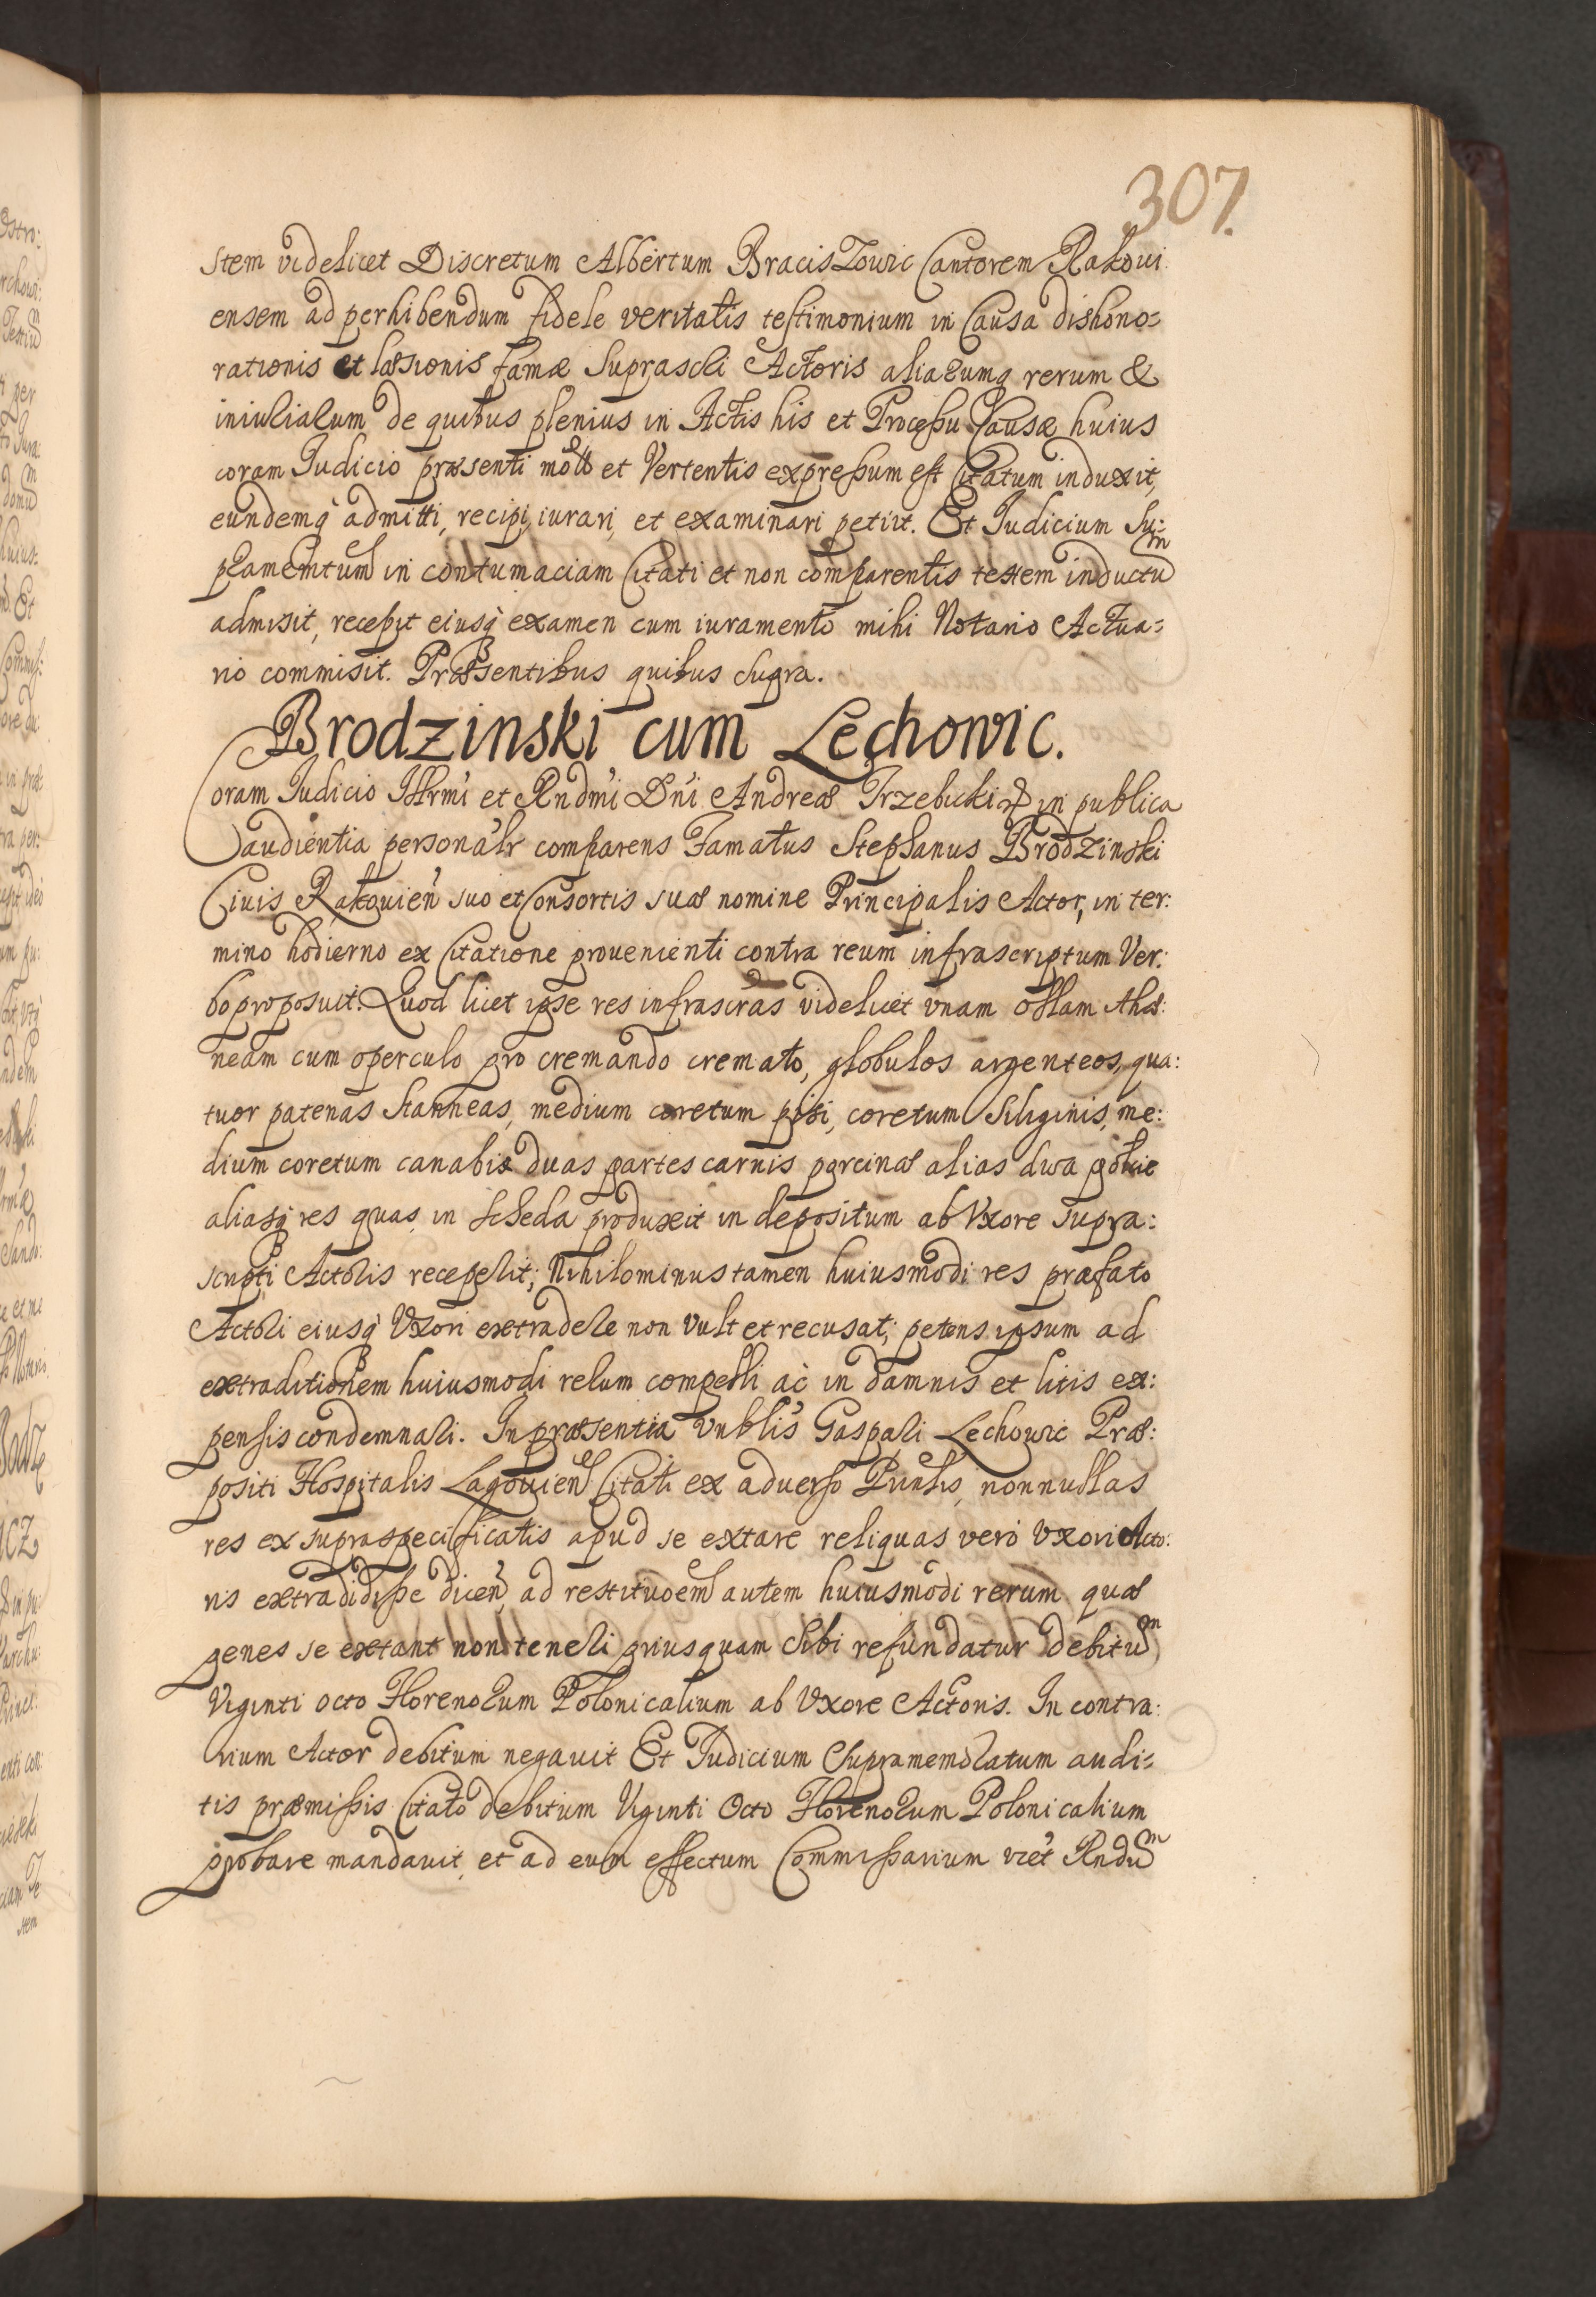 307.
stem videlicet Discretum Albertum Braciszowic Cantorem Rakoui
ensem ad perhibendum fidele veritatis testimonium in Causa dishono=
rationis et læsionis famæ Suprascti Actoris aliarumq rerum &
iniuriarum de quibus plenius in Actis his et Processu Causæ huius
coram Iudicio præsenti et Vertentis expressum est Citatum induxit,
eundemq admitti, recipi, iurari, et examinari petiit. Et Iudicium Su=
in contumaciam Citati et non comparentis testem inductum
admisit, recepit eiusq examen cum iuramento mihi Notario Actua=
rio commisit. Præsentibus quibus supra.
Brodzinski cum Lechowic.
Coram Iudicio Illrmi et Rndmi Dni Andreæ Trzebicki & in publica
audientia personalr comparens Famatus Stephanus Brodzinski
Ciuis Rakouien suo et Consortis suæ nomine Principalis Actor, in ter:
mino hodierno ex Citatione prouenienti contra reum infrascriptum Ver:
bo proposuit. Quod licet ipse res infrascras videlicet vnam ollam Ahæ:
neam cum operculo pro cremando cremato, globulos argenteos, qua:
tuor patenas stanneas, medium coretum pisi, coretum Siliginis, me:
dium coretum canabis duas partes carnis porcinæ alias dwa połcie
aliasq res quas in scheda produxit in depositum ab Vxore supra:
scripti Actoris receperit; Nihilominus tamen huiusmodi res præfato
Actori eiusq Vxori extradere non vult et recusat; petens ipsum ad
extraditionem huiusmodi rerum compelli ac in damnis et litis ex:
pensis condemnari. In præsentia Vnblis Gaspari Lechowic Præ:
positi Hospitalis Lagouien Citati ex aduerso Punlis, nonnullas
res ex supraspecificatis apud se extare reliquas vero Vxori Acto:
ris extradidisse dicen, ad restituoem autem huiusmodi rerum quæ
penes se extant non teneri priusquam Sibi refundatur debitum
Viginti octo Florenorum Polonicalium ab Vxore Actoris. In contra:
rium Actor debitum negauit Et Iudicium Supramemoratum audi=
tis præmissis Citato debitum Viginti Octo Florenorum Polonicalium
probare mandauit, et ad eum effectum Commissarium vzet Rndum